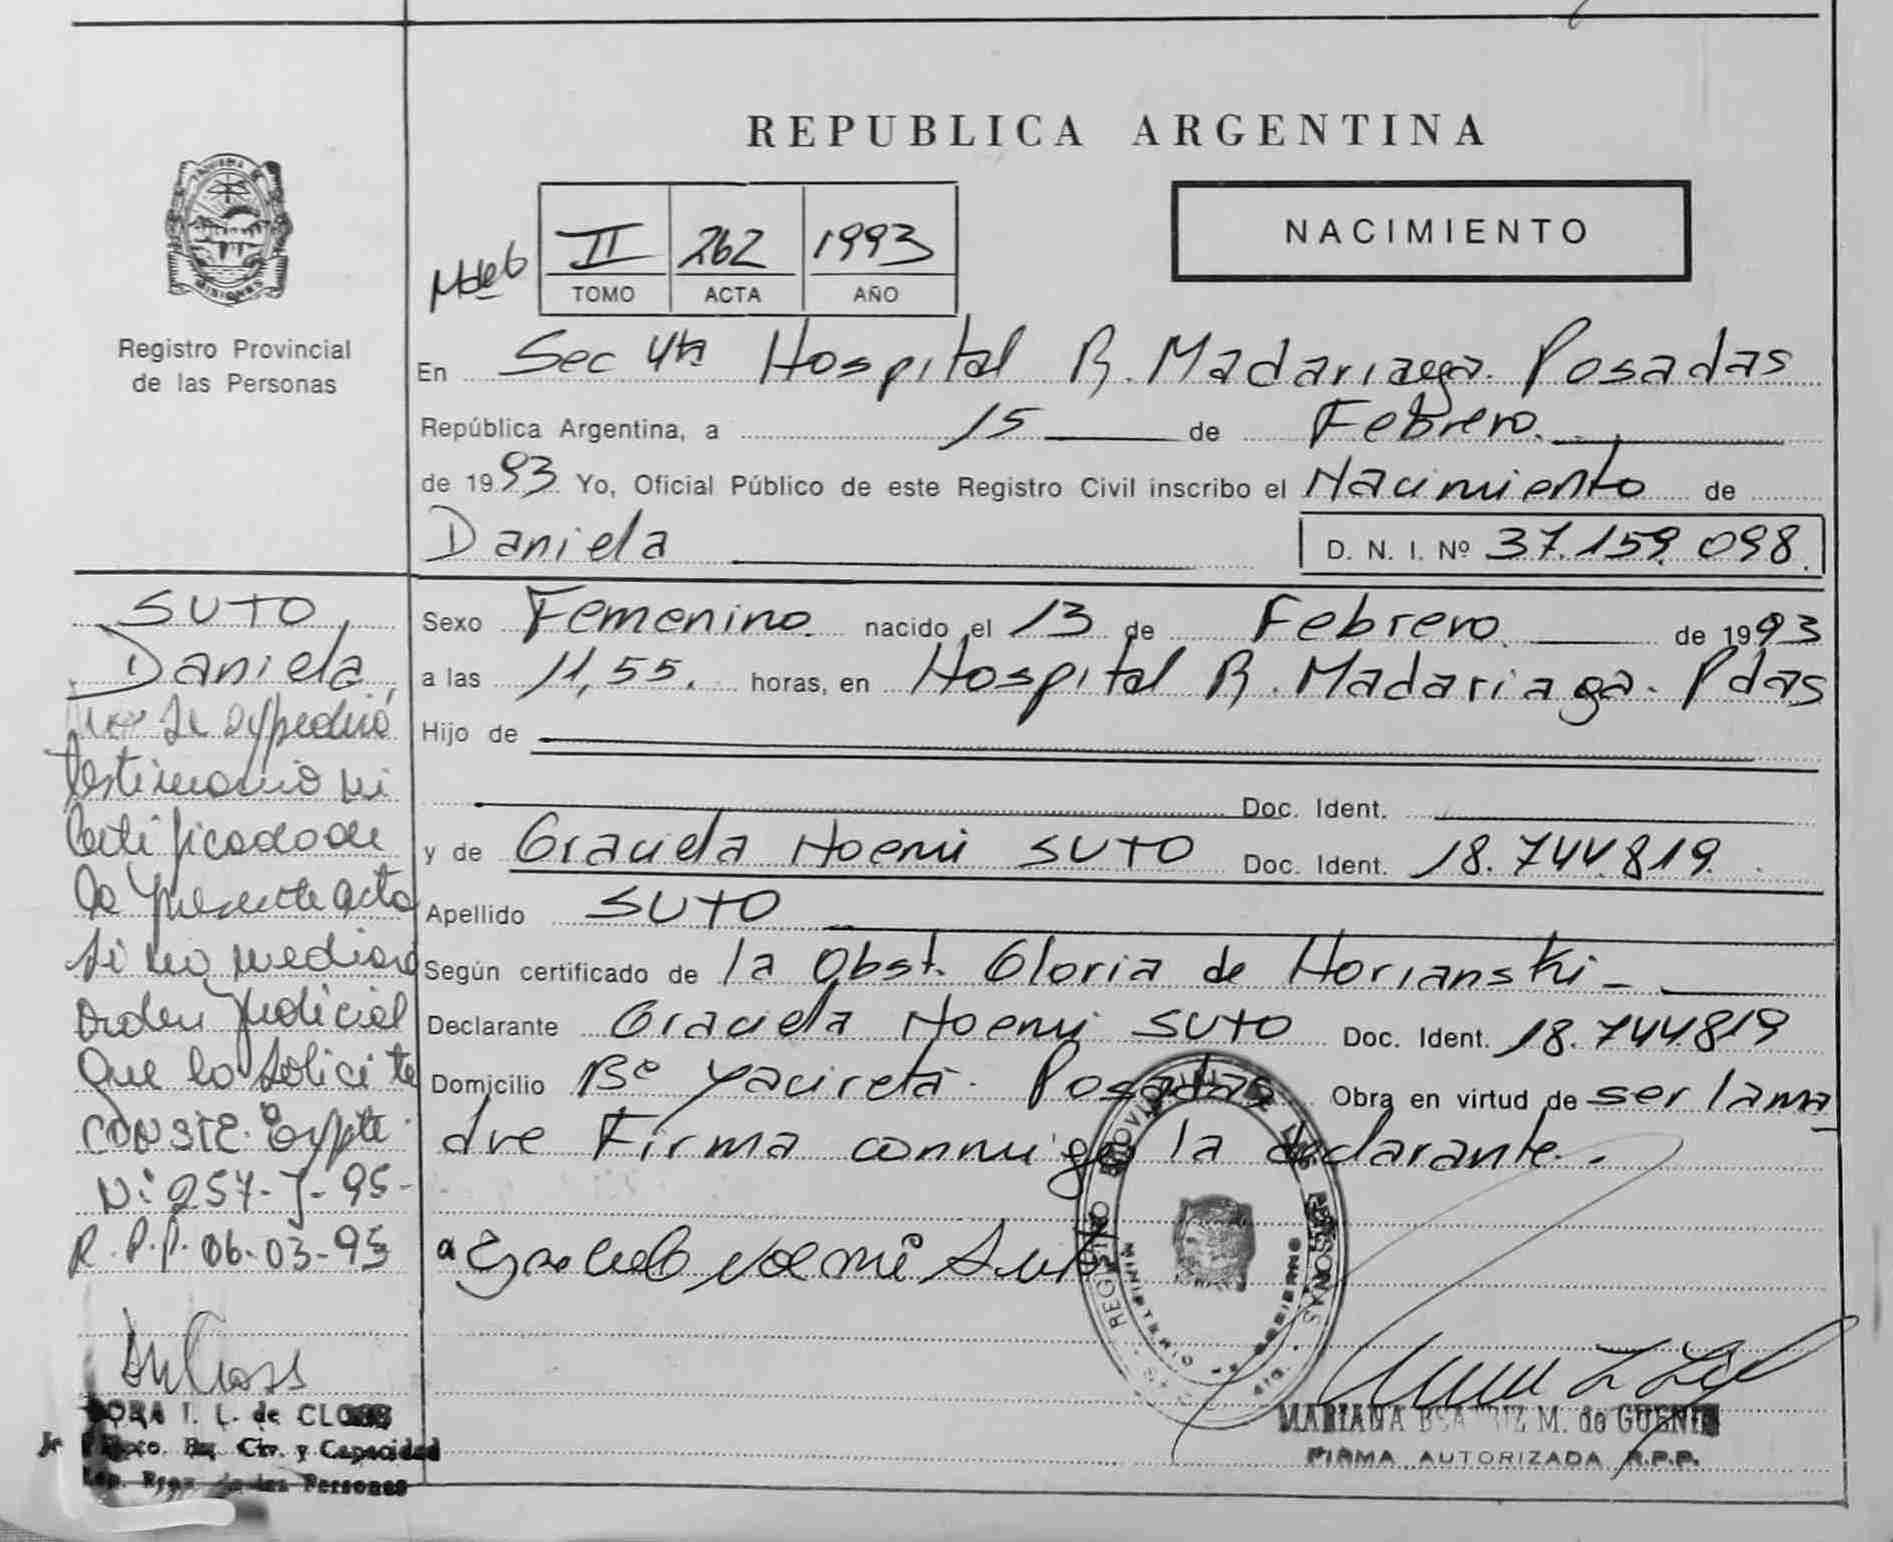 REPUBLICA ARGENTINA
NACIMIENTO
II 262 1993
TOMO ACTA AÑO
MISIONES
Registro Provincial
de las Personas
En Sec 4ta Hospital R. Madariaga. Posadas
República Argentina, a 15 de Febrero.
de 1993 Yo, Oficial Público de este Registro Civil inscribo el Nacimiento de
Daniela
D. N. I. Nº 37.159.098.
Sexo Femenino. nacido el 13 de Febrero. de 1993
a las 11,55. horas, en Hospital R. Madariaga. Pdas
Hijo de
Doc. Ident.
y de Graciela Noemi SUTO Doc. Ident. 18.744.819.
Apellido SUTO
Según certificado de la Obst. Gloria de Horianski -
Declarante Graciela Noemi SUTO Doc. Ident. 18.744.819
Domicilio Bº Yacireta. Posadas Obra en virtud de ser la ma
dre Firma conmigo la declarante.
SUTO
Daniela
no se expedirá
testimonio ni
Certificado de
la presente acta
si no mediara
Orden Judicial
Que lo solicite
CONSTE. Expte.
Nº 257-J-95-
R.P.P. 06-03-95
DORA I. L. de CLOSS
Civ. y Capacidad
de las Personas
REGISTRO PROVINCIAL DE LAS PERSONAS
MINISTERIO DE GOBIERNO
MARIANA BEATRIZ M. de
FIRMA AUTORIZADA R.P.P.